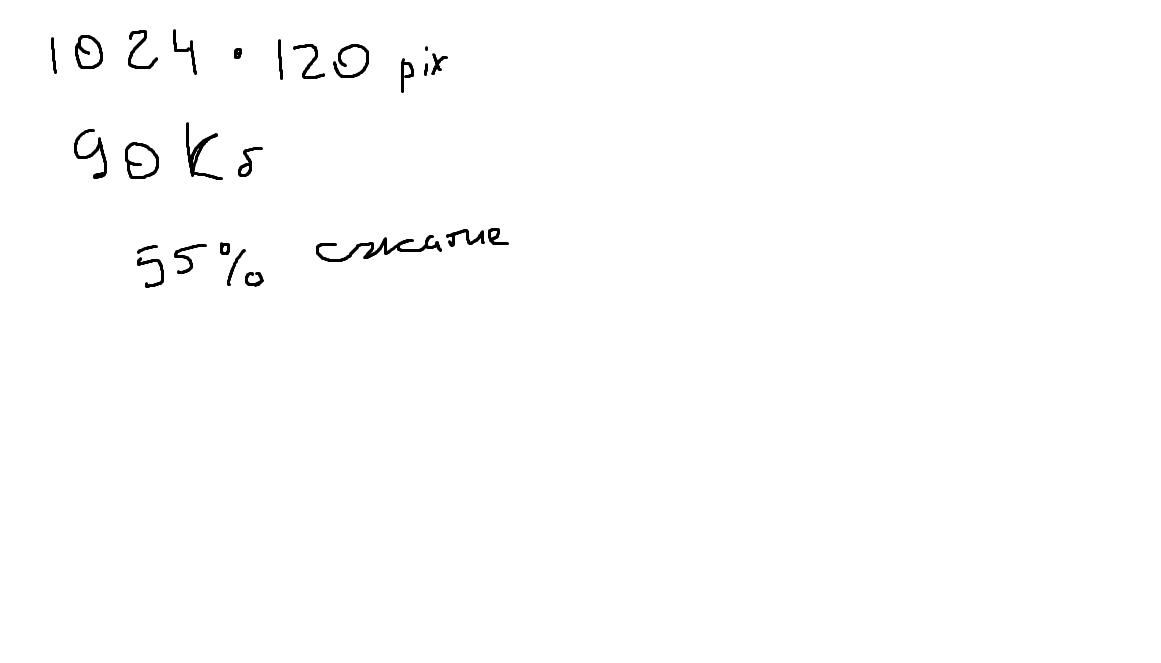 1024 · 120 pix
90 Кб
55% сжатие